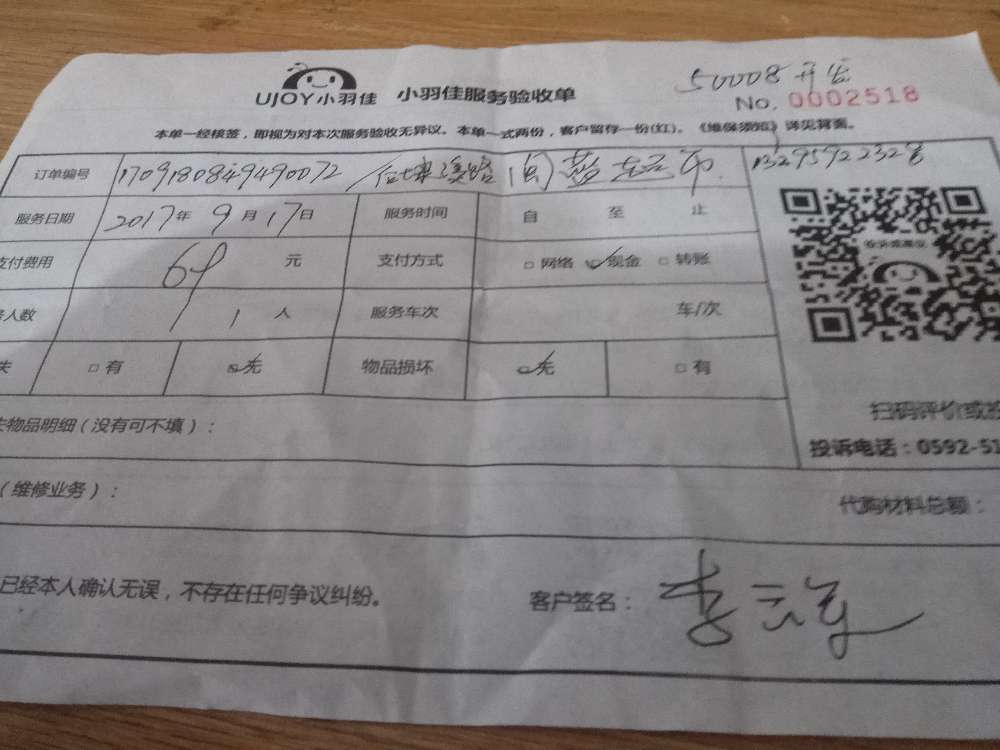 UJOY小羽佳 小羽佳服务验收单
50008开发
No. 0002518
本单一经核签，即视为对本次服务验收无异议。本单一式两份，客户留存一份(红)。《维保须知》详见背面。
订单编号 1709180849490072
13295922328
服务日期 2017年 9月 17日 服务时间 自 至 止
支付费用 69 元 支付方式 □网络 ☑现金 □转账
人数 1 人 服务车次 车/次
失 □有 ☑无 物品损坏 ☑无 □有
扫码评价或投
物品明细（没有可不填）：
投诉电话：0592-51
（维修业务）：
代购材料总额：
已经本人确认无误，不存在任何争议纠纷。
客户签名：李